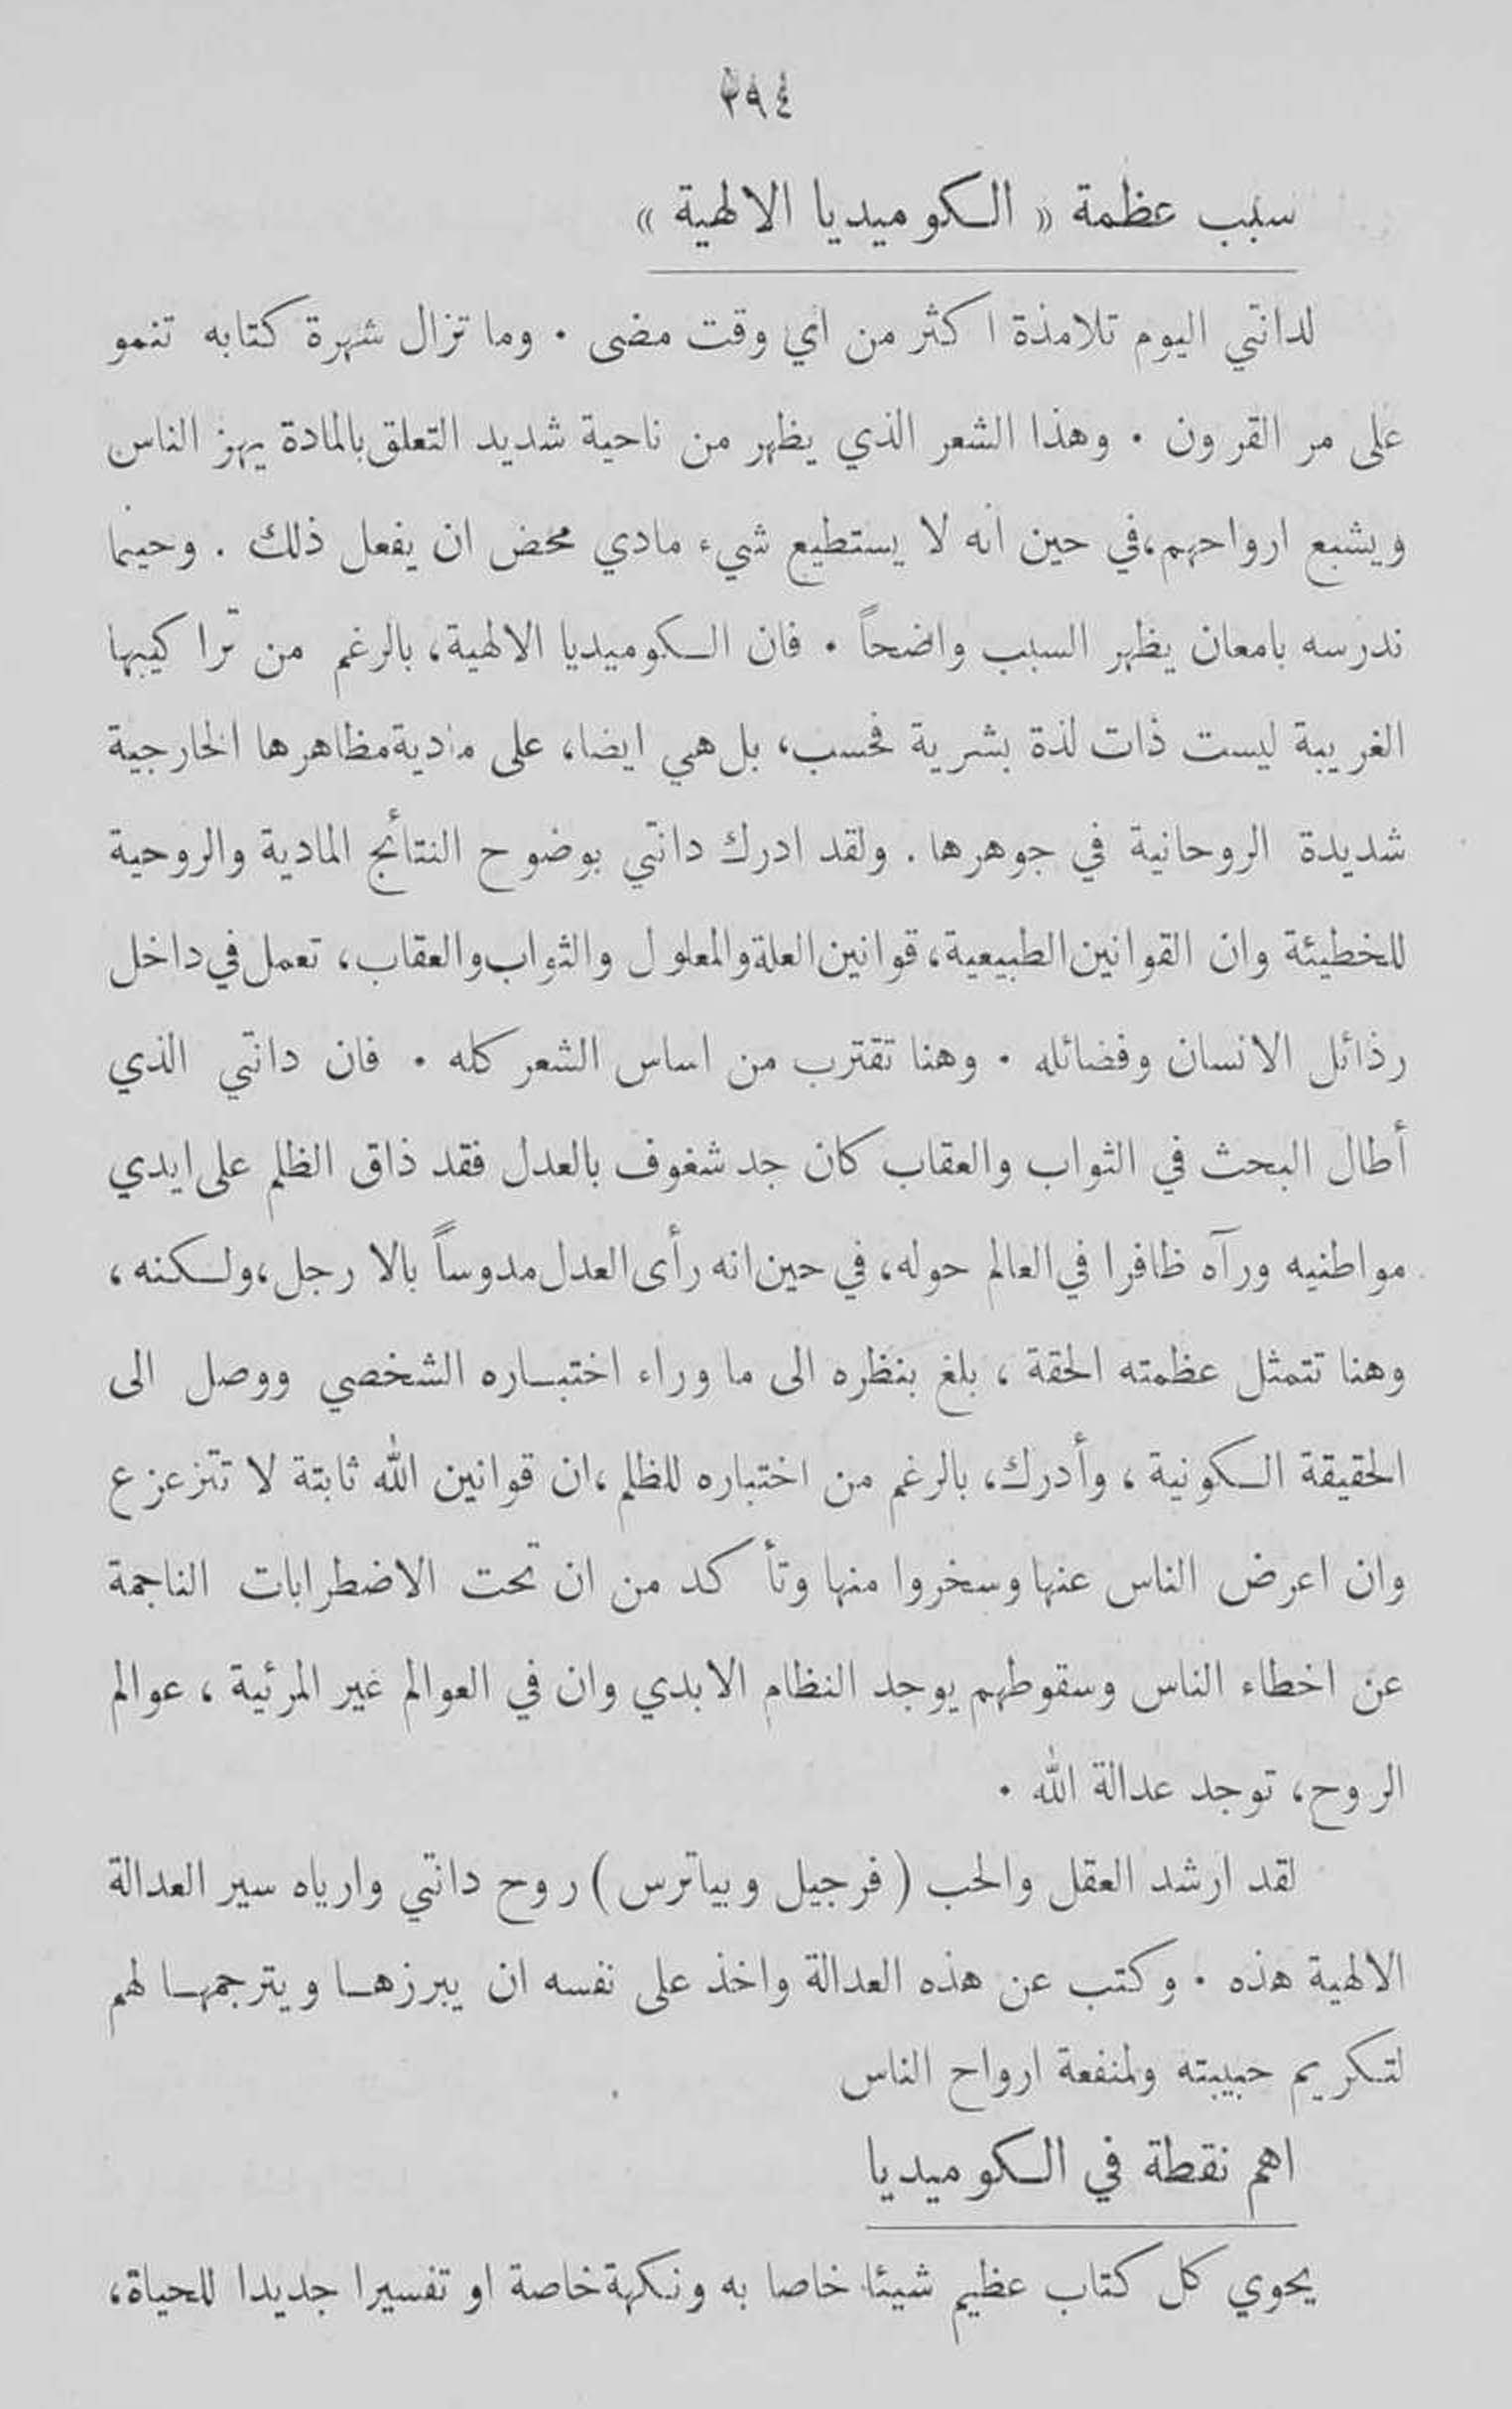 ٣٩٤
سبب عظمة « الكوميديا الالهية »
لدانتي اليوم تلامذة اكثر من اي وقت مضى . وما تزال شهرة كتابه تنمو
على مر القرون . وهذا الشعر الذي يظهر من ناحية شديد التعلق بالمادة يهز الناس
ويشبع ارواحهم، في حين انه لا يستطيع شيء مادي محض ان يفعل ذلك . وحينما
ندرسه بامعان يظهر السبب واضحاً . فان الكوميديا الالهية، بالرغم من تراكيبها
الغريبة ليست ذات لذة بشرية فحسب، بل هي ايضا، على مادية مظاهرها الخارجية
شديدة الروحانية في جوهرها . ولقد ادرك دانتي بوضوح النتائج المادية والروحية
للخطيئة وان القوانين الطبيعية، قوانين العلة والمعلول والثواب والعقاب، تعمل في داخل
رذائل الانسان وفضائله . وهنا تقترب من اساس الشعر كله . فان دانتي الذي
أطال البحث في الثواب والعقاب كان جد شغوف بالعدل فقد ذاق الظلم على ايدي
مواطنيه ورآه ظافرا في العالم حوله، في حين انه رأى العدل مدوساً بالارجل، ولكنه،
وهنا تتمثل عظمته الحقة ، بلغ بنظره الى ما وراء اختباره الشخصي ووصل الى
الحقيقة الكونية ، وأدرك، بالرغم من اختباره للظلم، ان قوانين الله ثابتة لا تتزعزع
وان اعرض الناس عنها وسخروا منها وتأكد من ان تحت الاضطرابات الناجمة
عن اخطاء الناس وسقوطهم يوجد النظام الابدي وان في العوالم غير المرئية ، عوالم
الروح، توجد عدالة الله .
لقد ارشد العقل والحب ( فرجيل وبياترس ) روح دانتي وارياه سير العدالة
الالهية هذه . وكتب عن هذه العدالة واخذ على نفسه ان يبرزها ويترجمها لهم
لتكريم حبيبته ولمنفعة ارواح الناس
اهم نقطة في الكوميديا
يحوي كل كتاب عظيم شيئا خاصا به ونكهة خاصة او تفسيرا جديدا للحياة،